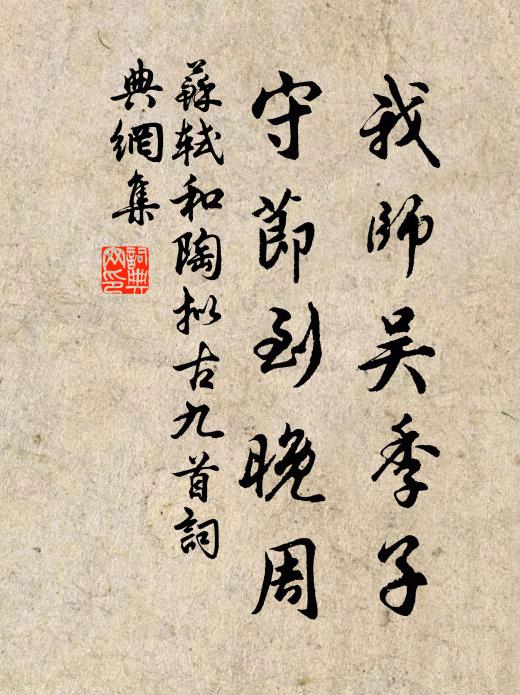 我師吴季子
守節到晚周
蘇軾和陶拟古九首詞
典網集
詞典
网印